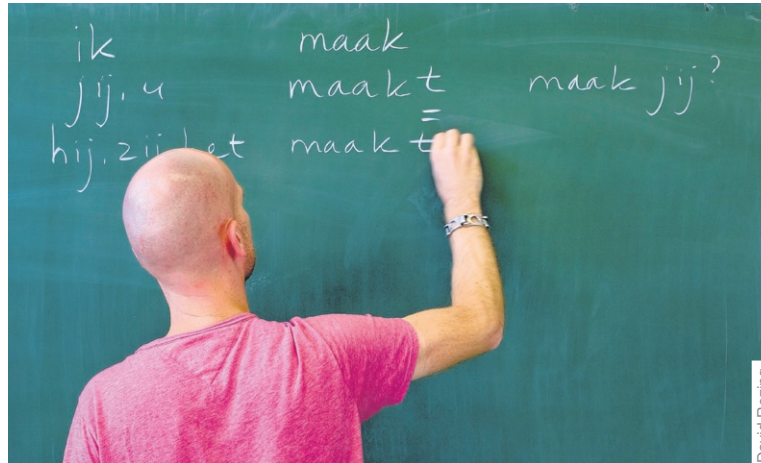 ik maak
jij, u maakt maak jij?
hij, zij, het maakt